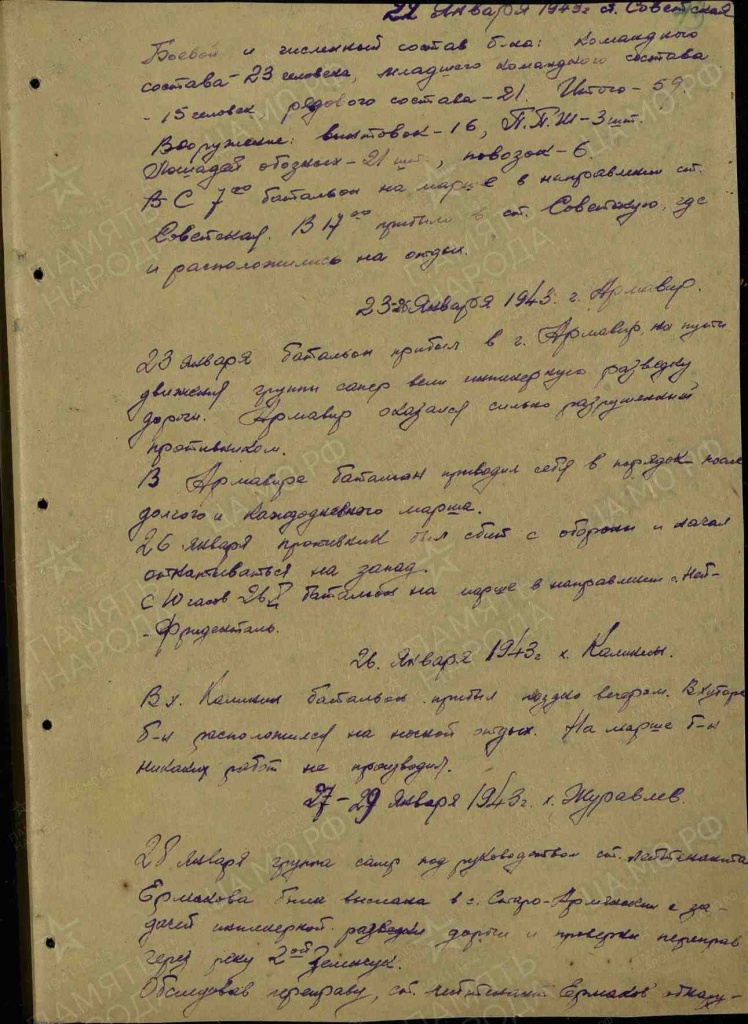 22 Января 1943г ст. Советская
Боевой и численный состав б-на: командного
состава - 23 человека, младшего командного состава
- 15 человек, рядового состава - 21. Итого - 59.
Вооружение: винтовок - 16, П.П.Ш - 3 шт.
Лошадей обозных - 21 шт., повозок - 6.
С 7 00 батальон на марше в направлении ст.
Советская. В 17 00 прибыли в ст. Советскую, где
и расположились на отдых.
23-26 Января 1943. г. Армавир.
23 января батальон прибыл в г. Армавир, на пути
движения группы сапер вели инженерную разведку
дороги. Армавир оказался сильно разрушенный
противником.
В Армавире батальон приводил себя в порядок после
долгого и каждодневного марша.
26 января противник был сбит с обороны и начал
откатываться на запад.
С 10 часов 26.I батальон на марше в направлении с. Ней-
- Фриденталь.
26. Января 1943г х. Калинин.
В х. Калинин батальон прибыл поздно вечером. В хуторе
б-н расположился на ночной отдых. На марше б-н
никаких работ не производил.
27-29 Января 1943г. х. Журавлев.
28 января группа сапер под руководством ст. лейтенанта
Ермакова была выслана в с. Старо-Армянский с за-
дачей инженерной разведки дороги и проверки переправ
через реку 2ой Зеленчук.
Обследовав переправу, ст. лейтенант Ермаков обнару-
ПАМЯТЬ
НАРОДА
ЦАМО.РФ